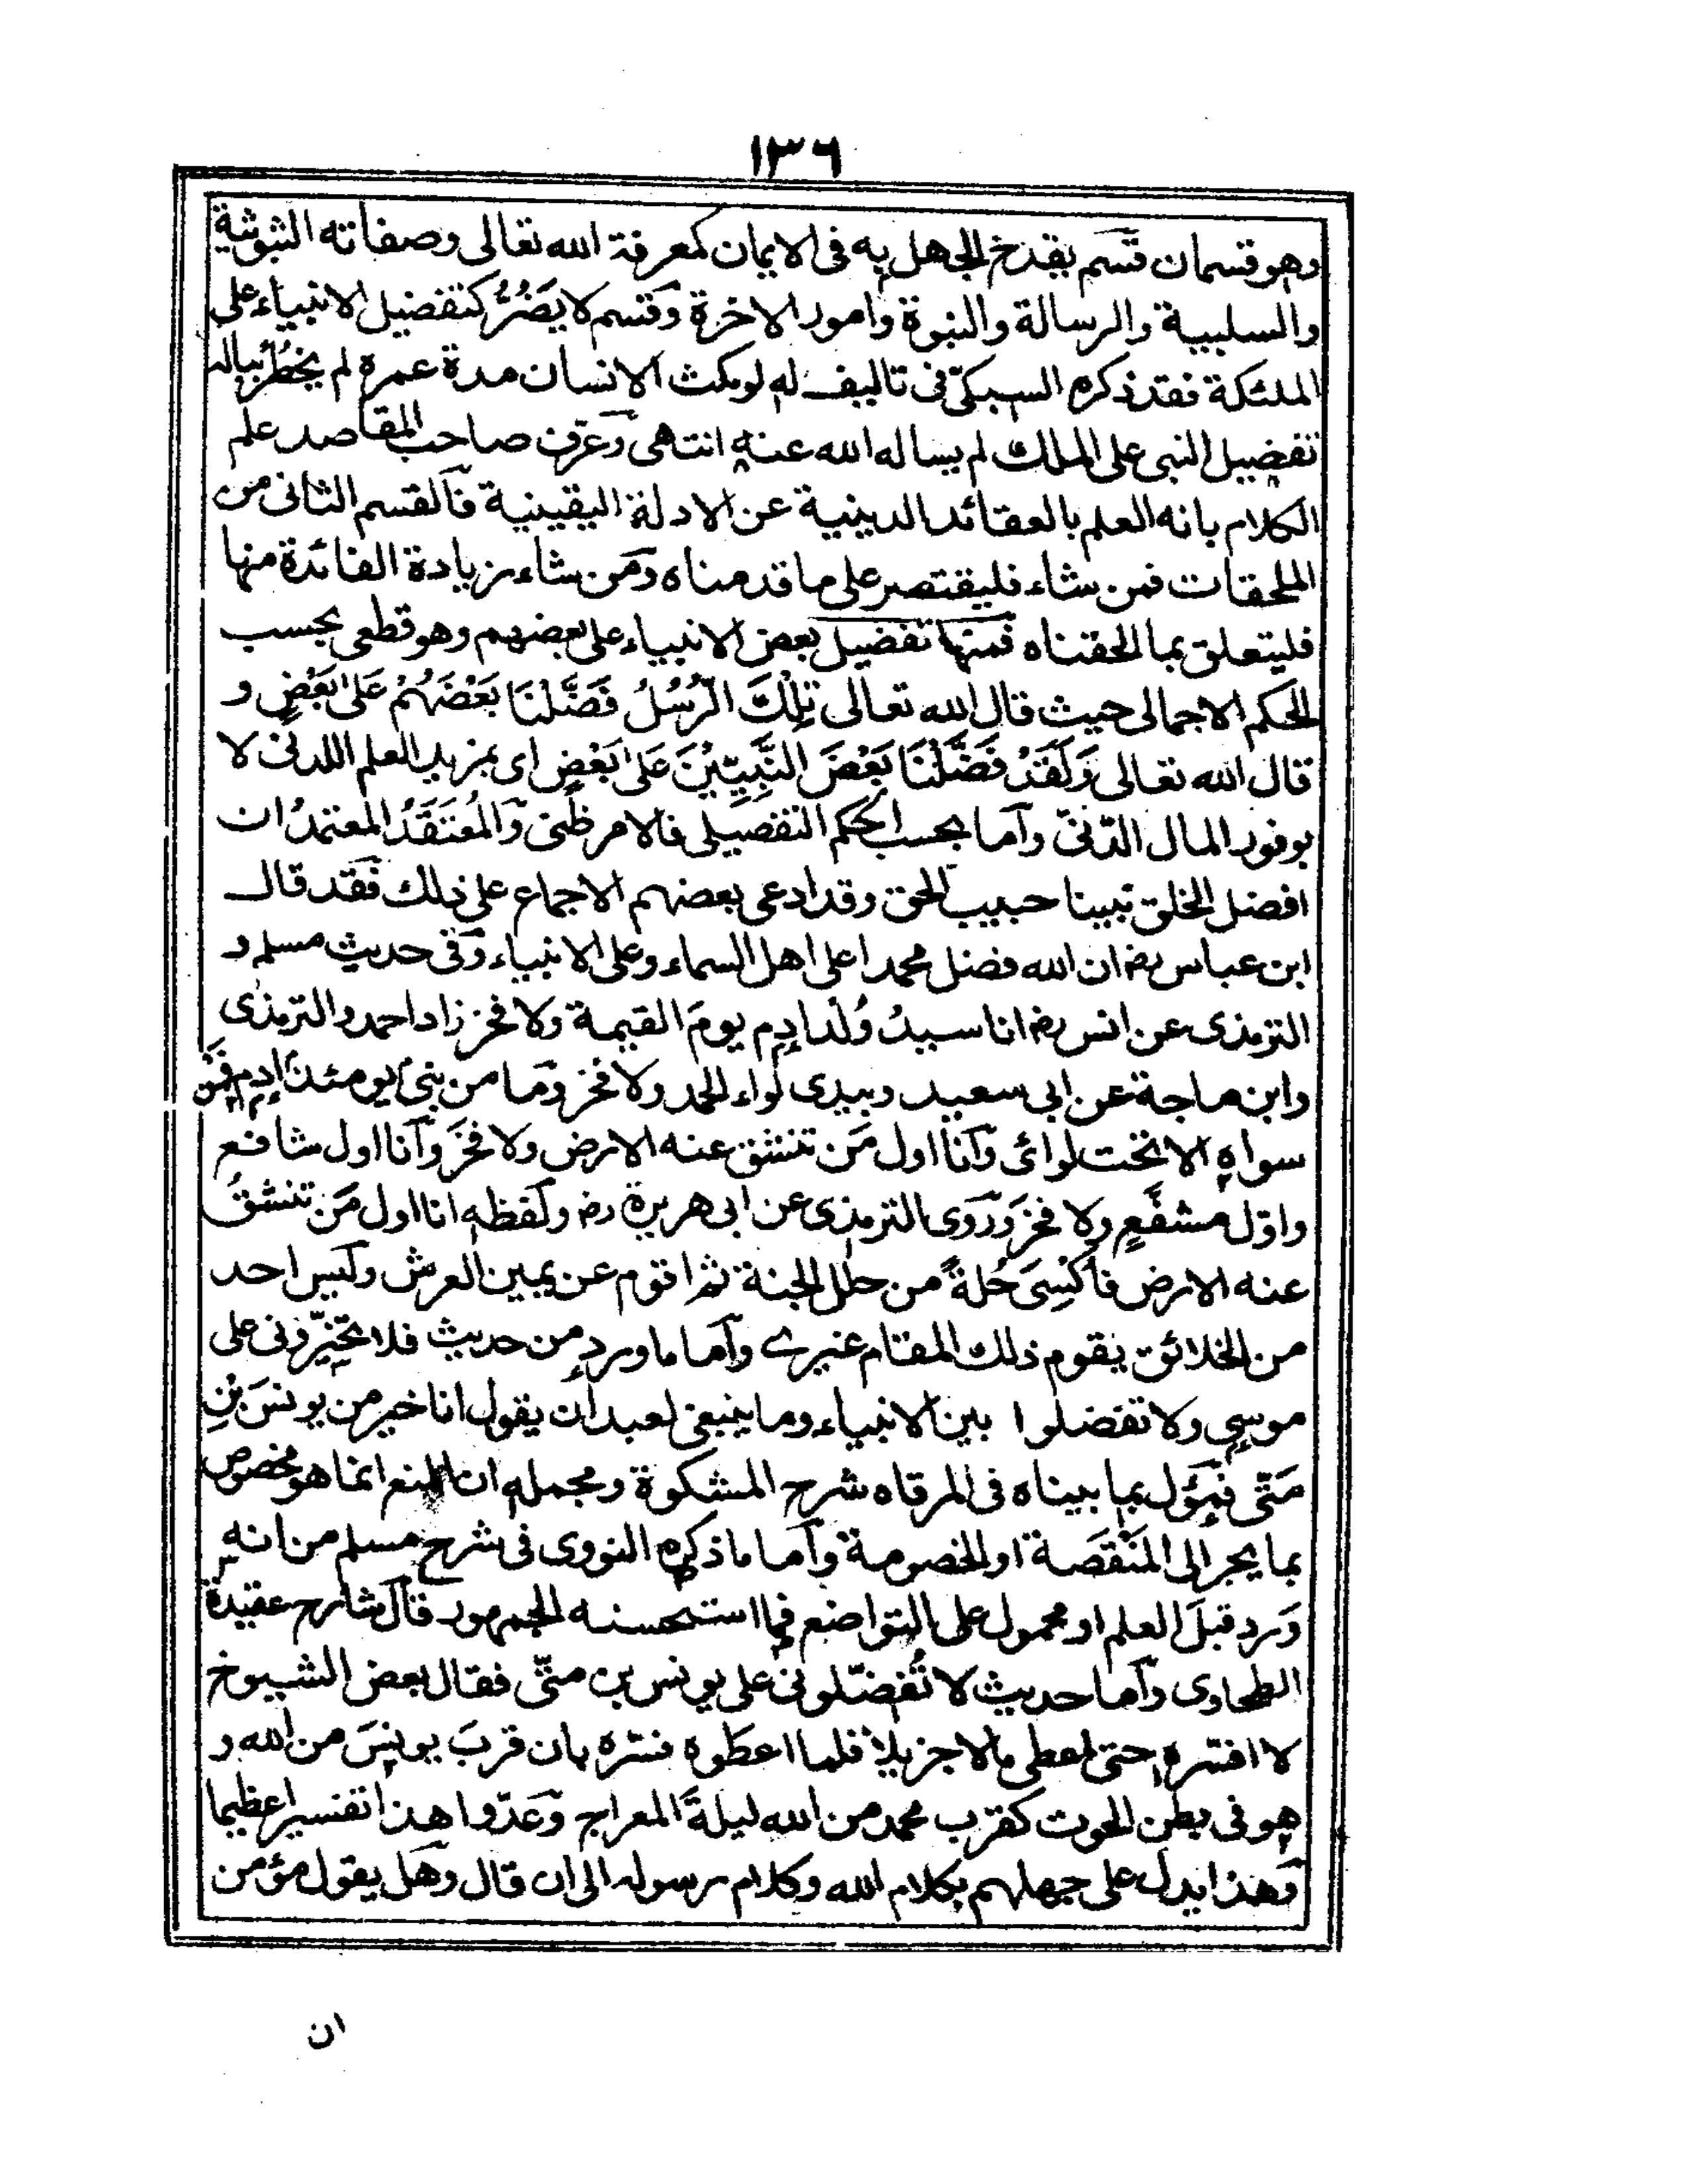 ١٣٦
وهو قسمان قسم يقدح الجهل به فى الايمان كمعرفة الله تعالى وصفاته الثبوتية
والسلبية والرسالة والنبوة وامور الاخرة وقسم لا يَضُرُّ كتفضيل الانبياء على
الملئكة فقد ذكره السبكىّ فى تاليف له لو مكث الانسان مدة عمره لم يخطُر بباله
تفضيل النبى على الملك لم يساله الله عنه انتهى وَعَرّف صاحب المقاصد علم
الكلام بانه العلم بالعقائد الدينية عن الادلة اليقينية فالقسم الثانى من
الملحقات فمن شاء فليقتصر على ما قدمناه ومَن شاء زيادة الفائدة منها
فليتعلق بما الحقناه فمنها تفضيل بعض الانبياء على بعضهم وهو قطعى بحسب
الحكم الاجمالى حيث قال الله تعالى تِلْكَ الرُّسُلُ فَضَّلْنَا بَعْضَهُمْ عَلىٰ بَعْضٍ و
قال الله تعالى وَلَقَدْ فَضَّلْنَا بَعْضَ النَّبِيِّيْنَ عَلىٰ بَعْضٍ اى بمزيد العلم اللدنى لا
بوفور المال الدّنىّ وآما بحسب الحكم التفصيلى فالامر ظنى وَالمُعْتَقَدُ المعتمدُ ان
افضل الخلق نبينا حبيب الحق وقد ادعى بعضهم الاجماع على ذلك فَقد قال
ابن عباس رض ان الله فضل محمدا على اهل السماء وعلى الانبياء وَفى حديث مسلم و
الترمذى عن انس رض انا سيدُ وُلْدِ ادم يومَ القيمة ولا فخر زاد احمد والترمذى
وابن ماجة عن ابى سعيد وبيدى لواء الحمد ولا فخر وَما من نبىّ يومئذ ادم فمَن
سواه الا تحت لوائى وَآنا اول مَن تنشق عنه الارض ولا فخَر وَآنا اول شافع
واوّل مشفَّعٍ ولا فخر وَرَوى الترمذى عن ابى هريرة رض ولَفظه انا اول مَن تنشقُ
عنه الارض فاُكْسىَ حُلةً من حلل الجنة ثم اقوم عن يمين العرش ولَيس احد
من الخلائق يقوم ذلك المقام غيرى وآما ما ورد من حديث فلا تخَيِّرّونى على
موسى ولا تفضلوا بين الانبياء وما ينبغى لعبد ان يقول انا خير من يونسَ بْنِ
مَتّى فمؤل بما بيناه فى المرقاه شرح المشكوة ومجمله ان المنع انما هو مخصوص
بما يجر الى المَنْقَصَة او الخصومة وآما ما ذكره النووى فى شرح مسلم من انه
وَرد قبلَ العلم او محمول على التواضع فما استحسنه الجمهور قال شارح عقيدة
الطحاوى وآما حديث لا تُفضّلونى على يونس بن متىّ فقال بعض الشيوخ
لا افسّره حتى اعطى مالا جزيلا فلما اعطَوه فسّره بان قربَ يونسَ من الله و
هو فى بطن الحوت كقرب محمد من الله ليلةَ المعراج وَعَدّوا هذا تفسيرا عظيما
وَهذا يدل على جهلهم بكلام الله وكلام رسوله الى ان قال وهَل يقول مؤمن
ان